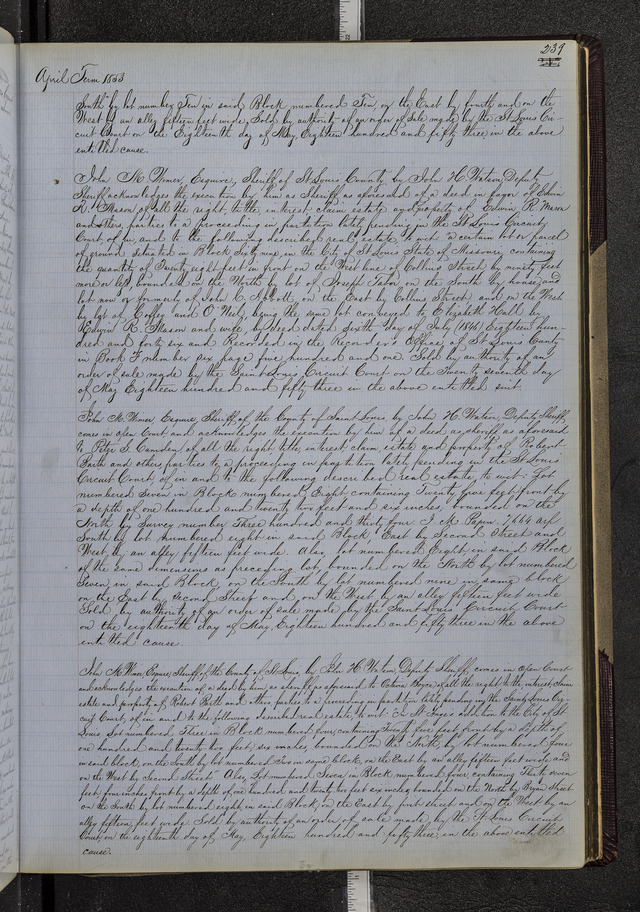 239
April Term 1853
South by lot number Ten in said Block numbered Ten, on the East by fourth and on the
West by an alley fifteen feet wide, Sold by authority of an order of Sale made by the St Louis Cir-
cuit Court on the Eighteenth day of May Eighteen hundred and fifty three in the above
entitled cause.
John M. Wimer, Esquire, Sheriff of St Louis County by John H. Watson, Deputy
Sheriff acknowledges the execution by him as Sheriff as aforesaid of a deed in favor of Edwin
R. Mason of all the right, title, interest, claim estate and property of Edwin R. Mason
and others, parties to a proceeding in partition lately pending in the St Louis Circuit
Court of in, and to the following described real estate, to wit: a certain lot or parcel
of ground situated in Block Sixty nine in the City of St Louis State of Missouri, containing
the quantity of Twenty eight feet in front on the West line of Collins Street by ninety feet
more or less bounded on the North by lot of Joseph Tabor on the South by house and
lot now or formerly of John C. Abbott, on the East by Collins Street and on the West
by lot of Coffey and O'Neil, being the same lot conveyed to Elizabeth Hall by
Edwin R. Mason and wife, by deed dated sixth day of July (1846) Eighteen hun-
dred and forty six and Recorded in the Recorder's Office of St Louis County
in Book F number six page five hundred and one. Sold by authority of an
order of sale made by the Saint Louis Circuit Court on the Twenty seventh day
of May Eighteen hundred and fifty three in the above entitled suit.
John M. Wimer Esquire, Sheriff of the County of Saint Louis by John H. Watson, Deputy Sheriff,
comes in open Court and acknowledges the execution by him of a deed as sheriff as aforesaid
to Peter G. Camden of all the right title, interest, claim, estate and property of Robert
Smith and others parties to a proceeding in partition lately pending in the St Louis
Circuit Court, of in and to the following described real estate, to wit: Lot
numbered Seven in Block numbered Eight containing Twenty five feet front by
a depth of one hundred and twenty two feet and six inches, bounded on the
North by Survey number Three hundred and thirty four
South by lot numbered eight in said Block East by Second Street and
West by an alley fifteen feet wide. Also, lot numbered Eight in said Block
of the same dimensions as preceding lot, bounded on the North by lot numbered
Seven in said Block, on the South by lot numbered nine in same block
on the East by Second Street and on the West by an alley fifteen feet wide
Sold by authority of an order of sale made by the Saint Louis Circuit Court
on the eighteenth day of May, Eighteen hundred and fifty three in the above
entitled cause.
John M Wimer, Esquire, Sheriff of the County of St Louis, by John H. Watson, Deputy Sheriff, comes in open Court
and acknowledges the execution of a deed by him as sheriff as aforesaid to Octavia Boyce of all the right title, interest, claim
estate and property of Robert Smith and other parties to a proceeding in partition lately pending in the Saint Louis Cir-
cuit Court, of, in and to the following described real estate, to wit: addition to the City of St
Louis Lot numbered Three in Block numbered four, containing Twenty five feet front by a depth of
one hundred and twenty two feet, six inches, bounded on the North by lot numbered four
in said block, on the South by lot numbered Two in same block, on the East by an alley fifteen feet wide and
on the West by Second Street. Also, Lot numbered Seven in Block numbered four, containing Thirty seven
feet four inches front by a depth of one hundred and twenty two feet six inches, bounded on the North by Bryan Street
on the South by lot numbered eight in said Block, on the East by first street and on the West by an
alley fifteen feet wide. Sold by authority of an order of sale made by the St Louis Circuit
Court on the eighteenth day of May, Eighteen hundred and fifty three, in the above entitled
cause.